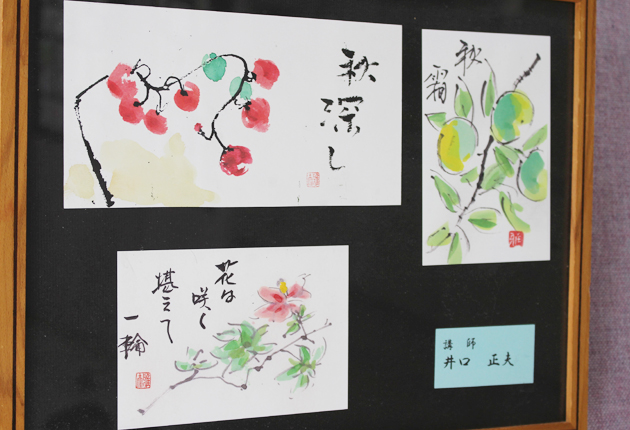 秋深し
秋
霜
花は
咲く
堪えて
一輪
講師
井口 正夫